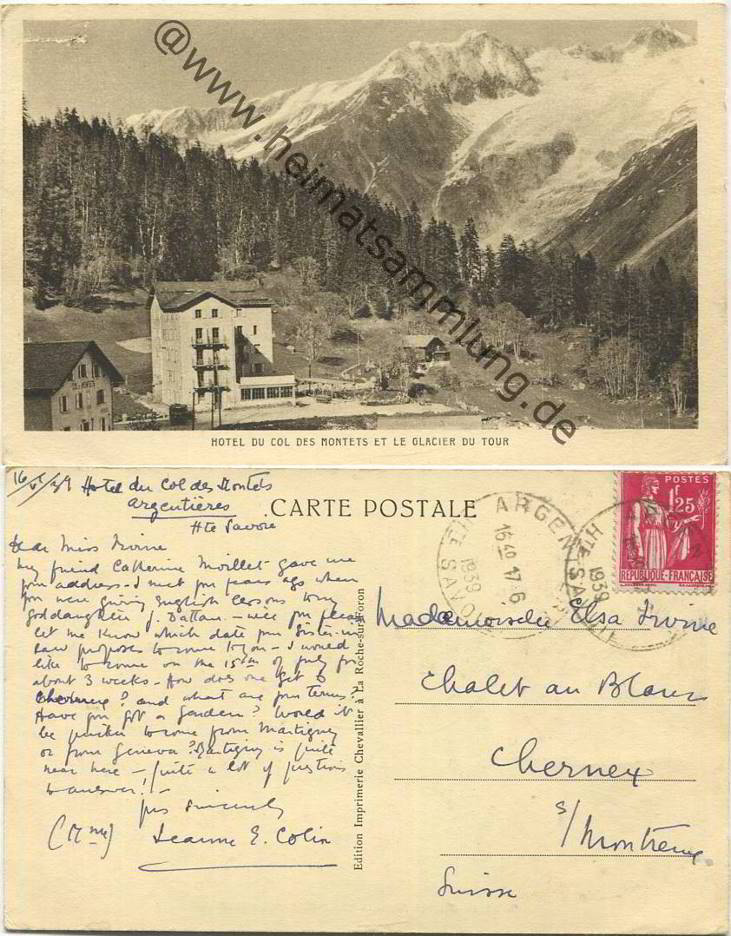 @www.heimatsammlung.de
HOTEL DU COL DES MONTETS ET LE GLACIER DU TOUR
Hotel du Col des Montets
Argentières
Hte Savoie
CARTE POSTALE
POSTES
1F25
REPUBLIQUE-FRANÇAISE
ARGEN
16 17 6
1939
SAVOIE
1939
Dear Miss Irvine
My friend Catherine Moillet gave me
your address. I met you years ago when
you were giving English lessons to my
goddaughter J. Dattan. - will you please
let me know which date your sister-in
law proposes to come to you - I would
like to come on the 15th of July for
about 3 weeks - How does one get to
Chernex? and what are your terms?
Have you got a garden? Would it
be quicker to come from Martigny
or from Geneva? Martigny is quite
near here - quite a lot of questions
to answer. -
yrs sincerely
(Mme) Jeanne E. Colin
Edition Imprimerie Chevallier à La Roche-sur-Foron
Mademoiselle Elsa Irvine
Chalet au Blanc
Chernex
s/Montreux
Suisse